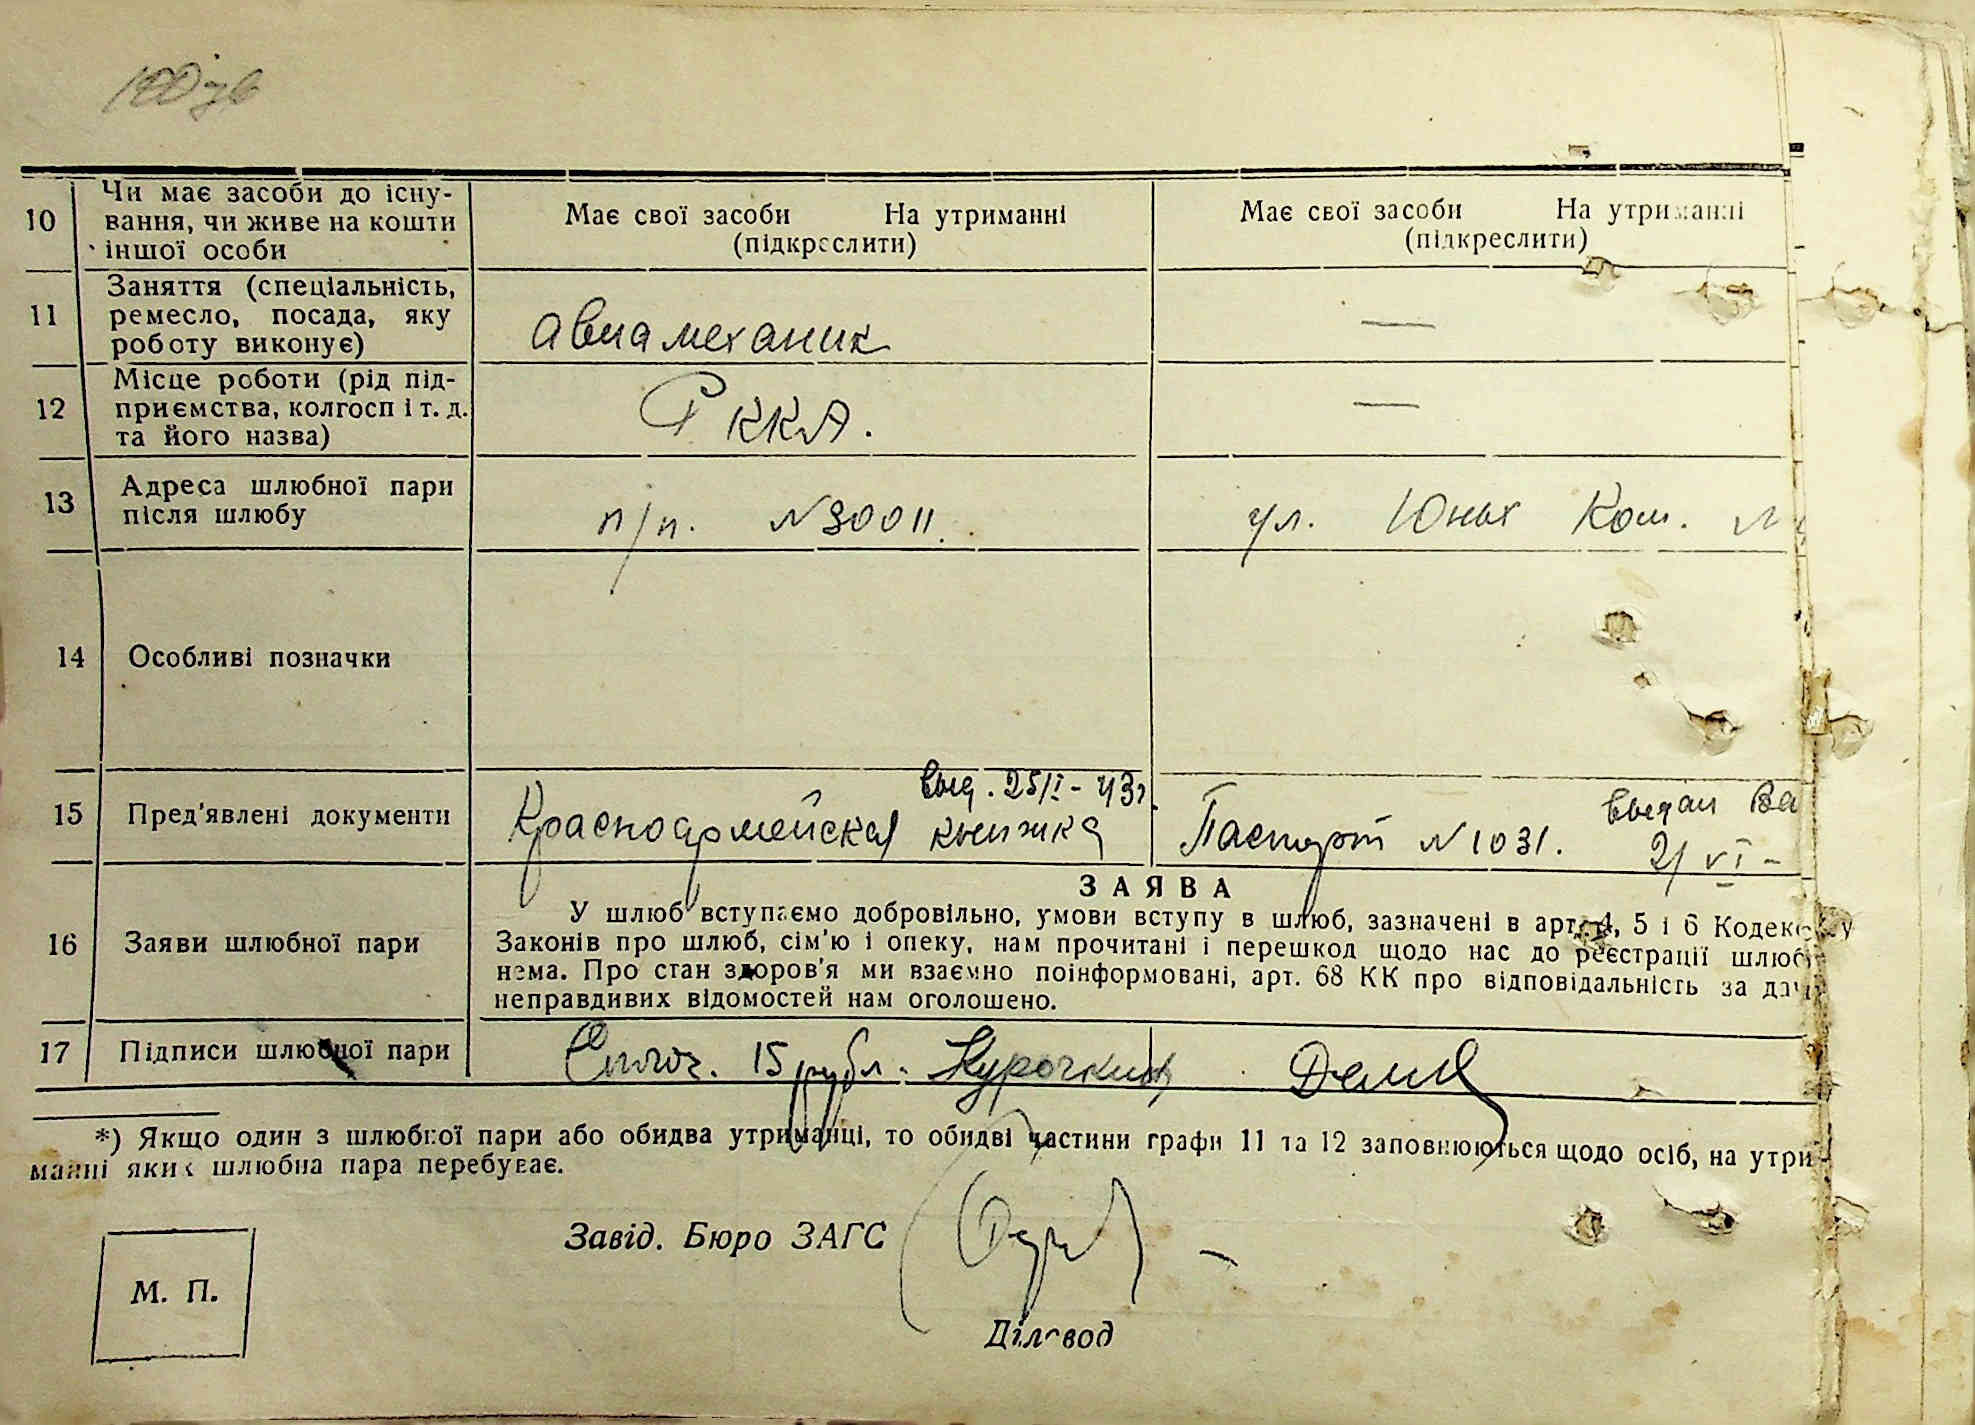 100 зв
10 Чи має засоби до існу-
вання, чи живе на кошти
іншої особи
Має свої засоби На утриманні
(підкреслити)
Має свої засоби На утриманні
(підкреслити)
11 Заняття (спеціальність,
ремесло, посада, яку
роботу виконує)
авиамеханик
—
12 Місце роботи (рід під-
приємства, колгосп і т. д.
та його назва)
РККА.
—
13 Адреса шлюбної пари
після шлюбу
п/п. № 30011.
ул. Юных Ком. №
14 Особливі позначки
15 Пред'явлені документи
выд. 25/I - 43г.
Красноармейская книжка
выдан Ва
Паспорт № 1031. 21 VI -
ЗАЯВА
16 Заяви шлюбної пари
У шлюб вступаємо добровільно, умови вступу в шлюб, зазначені в арт. 4, 5 і 6 Кодексу
Законів про шлюб, сім'ю і опеку, нам прочитані і перешкод щодо нас до реєстрації шлюб
нема. Про стан здоров'я ми взаємно поінформовані, арт. 68 КК про відповідальність за дач
неправдивих відомостей нам оголошено.
17 Підписи шлюбної пари
15 рубл. Курочкин
*) Якщо один з шлюбної пари або обидва утриманці, то обидві частини графи 11 та 12 заповнюються щодо осіб, на утри-
манні яких шлюбна пара перебуває.
Завід. Бюро ЗАГС
М. П.
Діловод